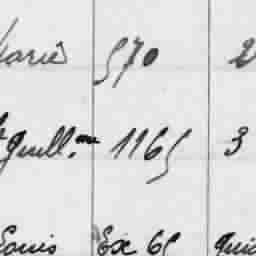 Marie 570 2
Guill.me 1165 3
Louis Ex 65